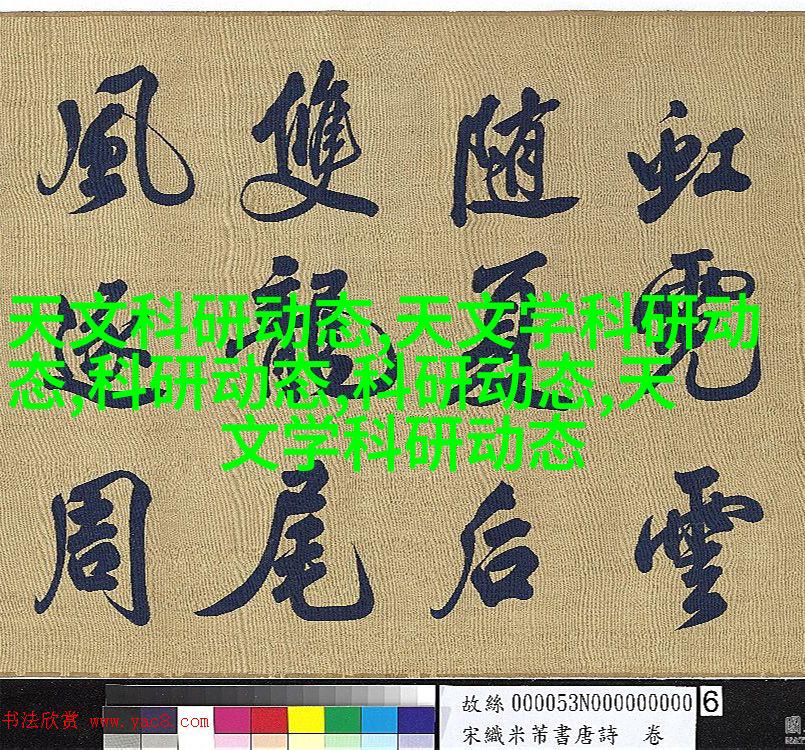 虹霓雲
随夏后
雙龍尾
風逐周
天文科研动态,天文学科研动
态,科研动态,科研动态,天
文学科研动态
书法欣赏 www.yac8.com
故絲 000053N000000000 6
宋織米芾書唐詩 卷